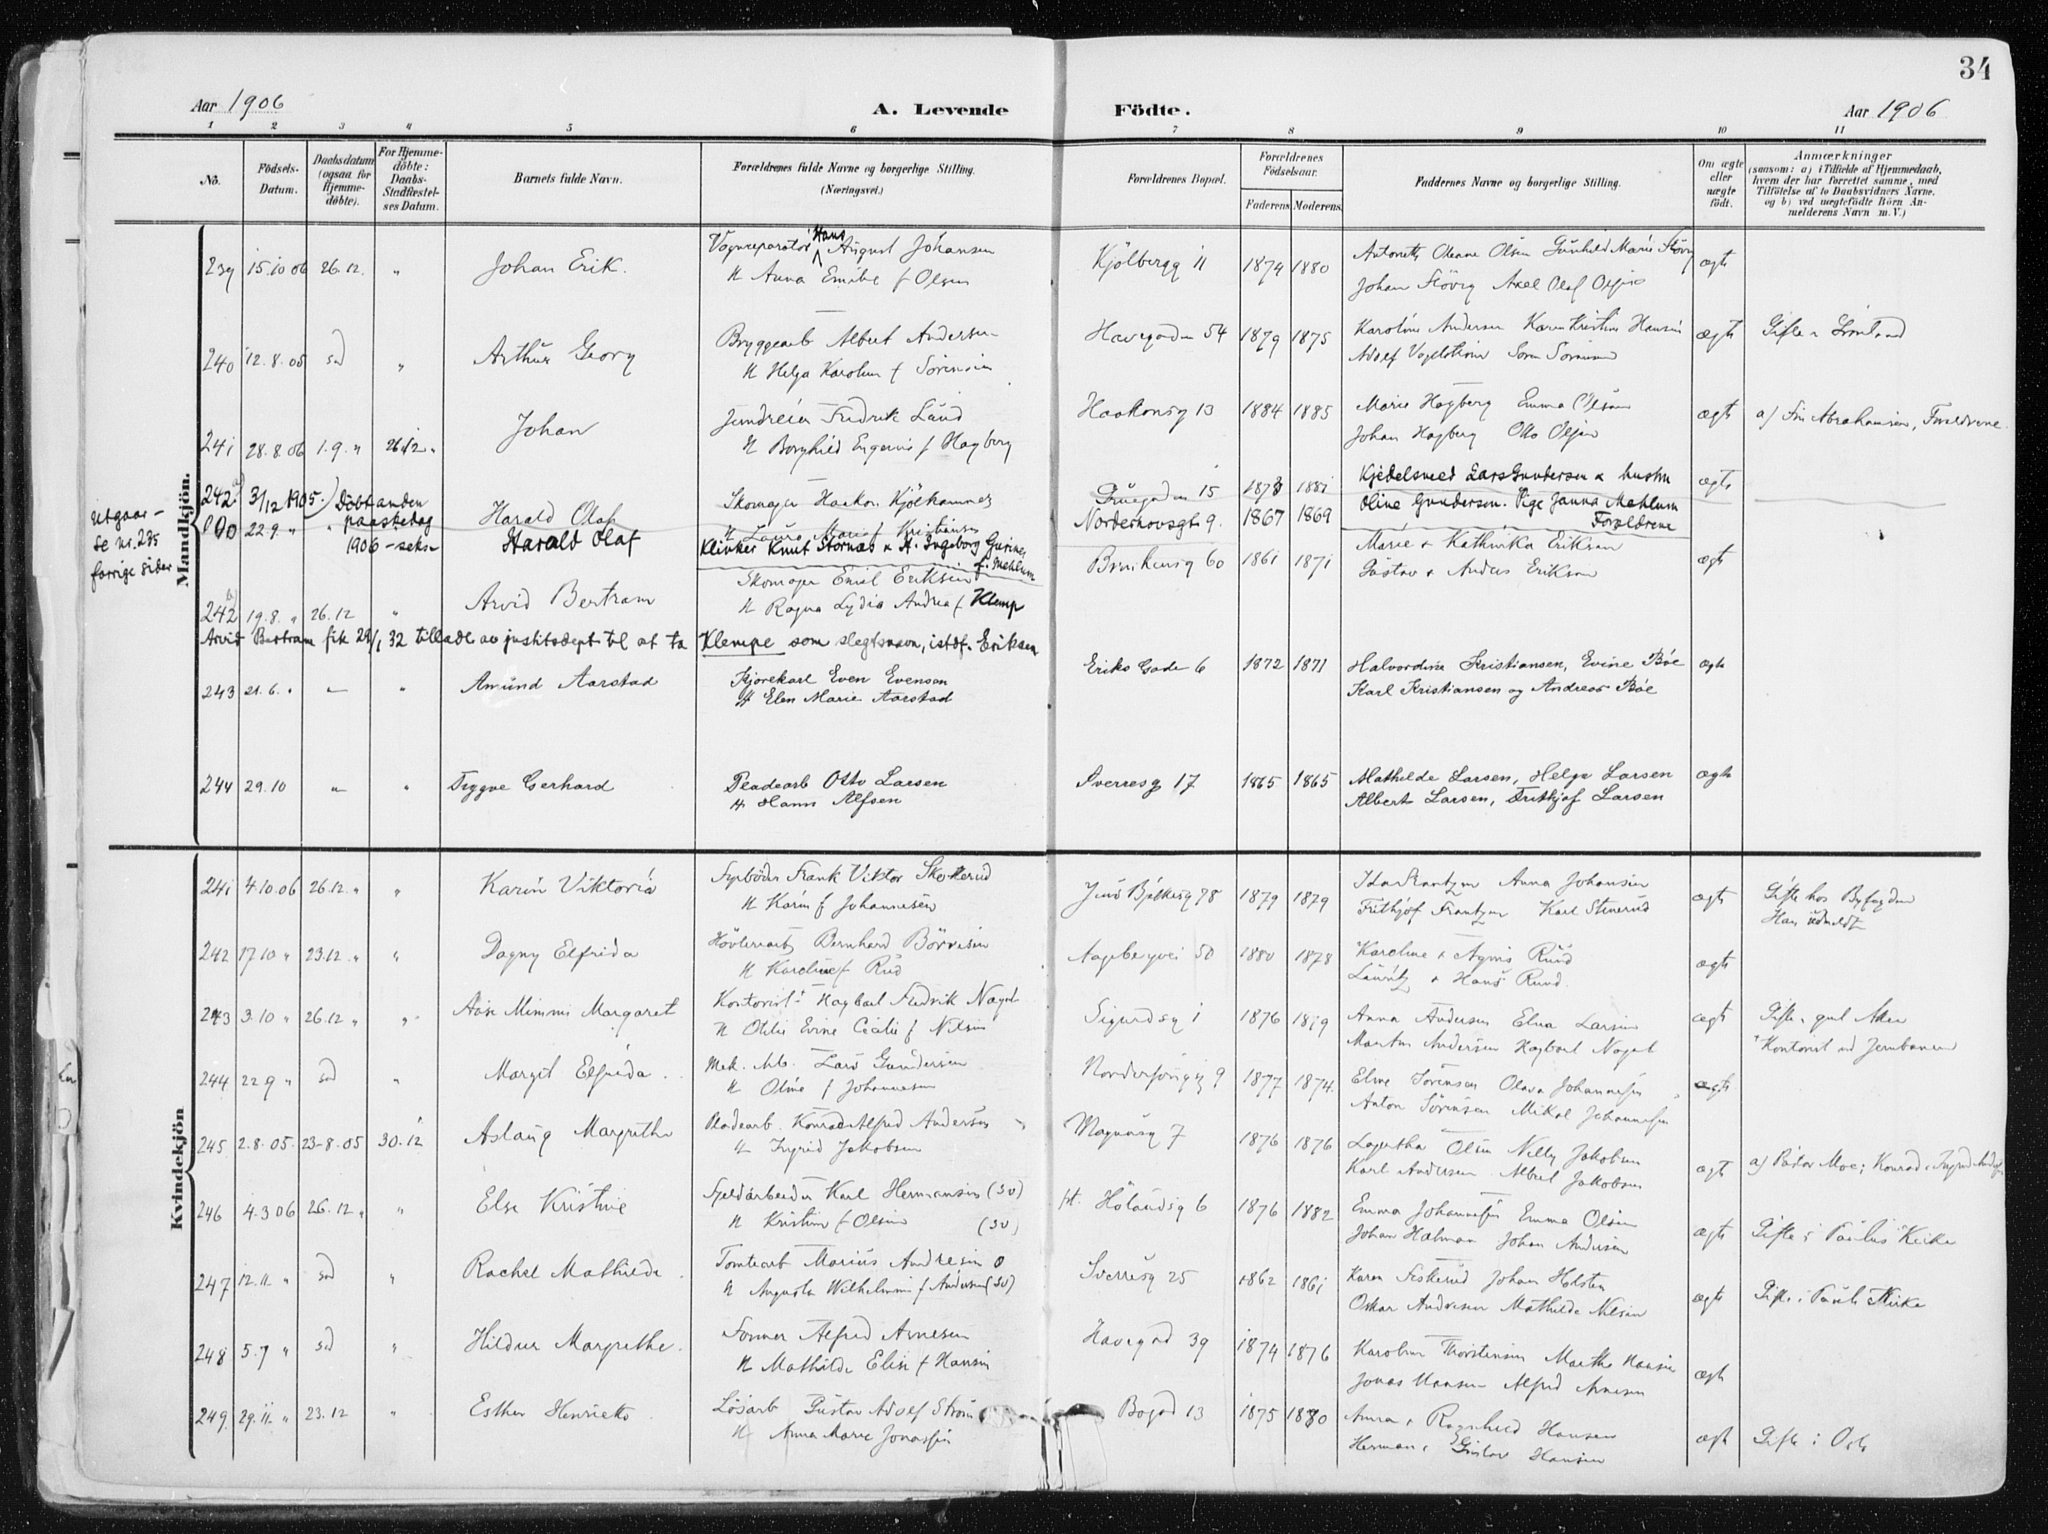 34
Aar 1906
A. Levende Födte.
Aar 1906
1 2 3 4 5 6 7 8 9 10 11
No.
Födsels-Datum.
Daabsdatum (ogsaa for Hjemme-döbte).
For Hjemme-döbte: Daabs-Stadfæstel-ses Datum.
Barnets fulde Navn.
Forældrenes fulde Navne og borgerlige Stilling.
(Næringsvei.)
Forældrenes Bopæl.
Forældrenes Födselsaar.
Faderens Moderens
Faddernes Navne og borgerlige Stilling.
Om ægte eller uægte födt.
Anmærkninger
(saasom: a) i Tilfælde af Hjemmedaab, hvem der har forrettet samme, med Tilföielse af to Daabsvidners Navne, og b) ved uægtefödte Börn An-melderens Navn m. V.)
Mandkjön.
239 15.10 06 26.12. " Johan Erik. Vognreparatör Hans August Johansen Kjölbergg 11 1874 1880 Antonette Oleane Olsen Gunhild Marie ægte
H Anna Emilie f Olsen Johan Axel Olaf
240 12.8.05 sd " Arthur Georg Bryggearb Albert Andersen Havegaden 54 1879 1875 Karoline Andersen Karen Kristine Hansen ægte Gifte i Grönland
H Helga Karoline f Sörensen Adolf
241 28.8.06 1.9. " 26.12 " Johan Fredrik Lund Haakonsg 13 1884 1885 Marie Hagberg Emma Olsen ægt a) Abrahamsen, Forældrene.
H Borghild f Hagberg Johan Hagberg Otto Olsen
242 a) 3/12 1905. Döbt anden paaskedag 1906 - sekr Skomager Haakon Kjölhammer 15 1873 1881 Kjedelsmed Lars Gundersen & hustru ægte
22.9 " Harald Olaf H Laura Marie f Kristiansen Norderhovsgt 9. 1867 1869 Oline Gundersen. Pige Janna Mehlum Forældrene
utgaar - se nr. 235 forrige sider
Harald Olaf Klinker Knut Stornæs & H. Ingeborg Gurine f. Mehlum
242 b) 19.8. " 26.12 " Arvid Bertram Skomager Emil Eriksen 60 1861 1871 Marie & Kathinka Eriksen ægt
H Ragna Lydia Andrea f Klemp Gustav & Anders Eriksen
Arvid Bertram fik 29/1 32 tillade av justitsdept til at ta Klempe som slegtsnavn, istdf. Eriksen
243 21.6. " " Amund Aarstad Kjörekarl Even Evensen Eriks Gade 6 1872 1871 Halvordine Kristiansen, Evine Böe ægte
H Elen Marie Aarstad Karl Kristiansen og Andreas Böe
244 29.10 " " Trygve Gerhard Pladearb Otto Larsen Sverresg 17 1865 1865 Mathilde Larsen, Helga Larsen ægte
H Hanna Alfsen Albert Larsen, Fritkjof Larsen
Kvindekjön
241 4.10.06 26.12. " " Karin Viktoria Fyrböder Frank Viktor Skotterud Jens Bjelkesg 78 1879 1879 Ida Frantzen Anna Johansen ægte Gifte hos Byfogden
H Karin f Johannesen Frithjof Frantzen Karl Stenerud Han udmeldt
242 17.10 " 23.12. " " Dagny Elfrida Hövleriarb Bernhard Börresen Aagebergvei 50 1880 1878 Karoline & Agnes Ruud ægte
H Karoline f Rud Lauritz & Hans Ruud.
243 3.10 " 26.12 " " Aase Mimmi Margaret Kontorist Hagbart Fredrik Nagel Sigurdsg 1 1876 1879 Anna Andersen Elna Larsen ægt Gifte i gml Aker
H Otilie Evine Cecilie f Nilsen Martin Andersen Hagbart Nagel Kontorist ved Jernbanen
244 22 9 " sd " Margit Elfrida. Mek. Arb. Lars Gundersen 9 1877 1874. Eline Sörensen Olava Johannesen ægte
H Oline f Johannesen Anton Sörensen Mikal Johannesen
245 2.8.05. 23-8.05 30.12 Aslaug Margrethe Pladearb. Konrad Alfred Andersen Magnusg 7 1876 1876 Lagertha Olsen Nelly Jakobsen ægt a) Pastor Moe; Konrad & Ingrid
H Ingrid Jakobsen Karl Andersen Albert Jakobsen
246 4.3 06 26.12 " " Else Kristine Fjeldarbeider Karl Hermansen (30) pt. Hölandsg 6 1876 1882 Emma Johannesen Emma Olsen ægte Gifte i Paulus Kirke
H Kristine f Olsen (30) Johan Johan Andersen
247 12.11. " sd " Rachel Mathilde. Tomtearb Marius Andresen 0 Sverresg 25 1862 1861 Karen Fiskerud Johan Holsten ægte Gifte i Pauls Kirke
H Augusta Wilhelmine f Andersen (30) Oskar Andresen Mathilde Nilsen
248 5.7 " sd " Hildur Margrethe. Former Alfred Arnesen Havegad 39 1874 1876 Karoline Thorstensen Marthe Hansen ægte
H Mathilde Elise f Hansen Jonas Hansen Alfred Arnesen
249 29.11. " 23.12 " Esther Henriette Lösarb Gustav Adolf Ström Bogad 13 1875 1880 Anna & Ragnhild Hansen ægt Gifte i Oslo
H Anna Marie Jonassen Herman & Gustav Hansen